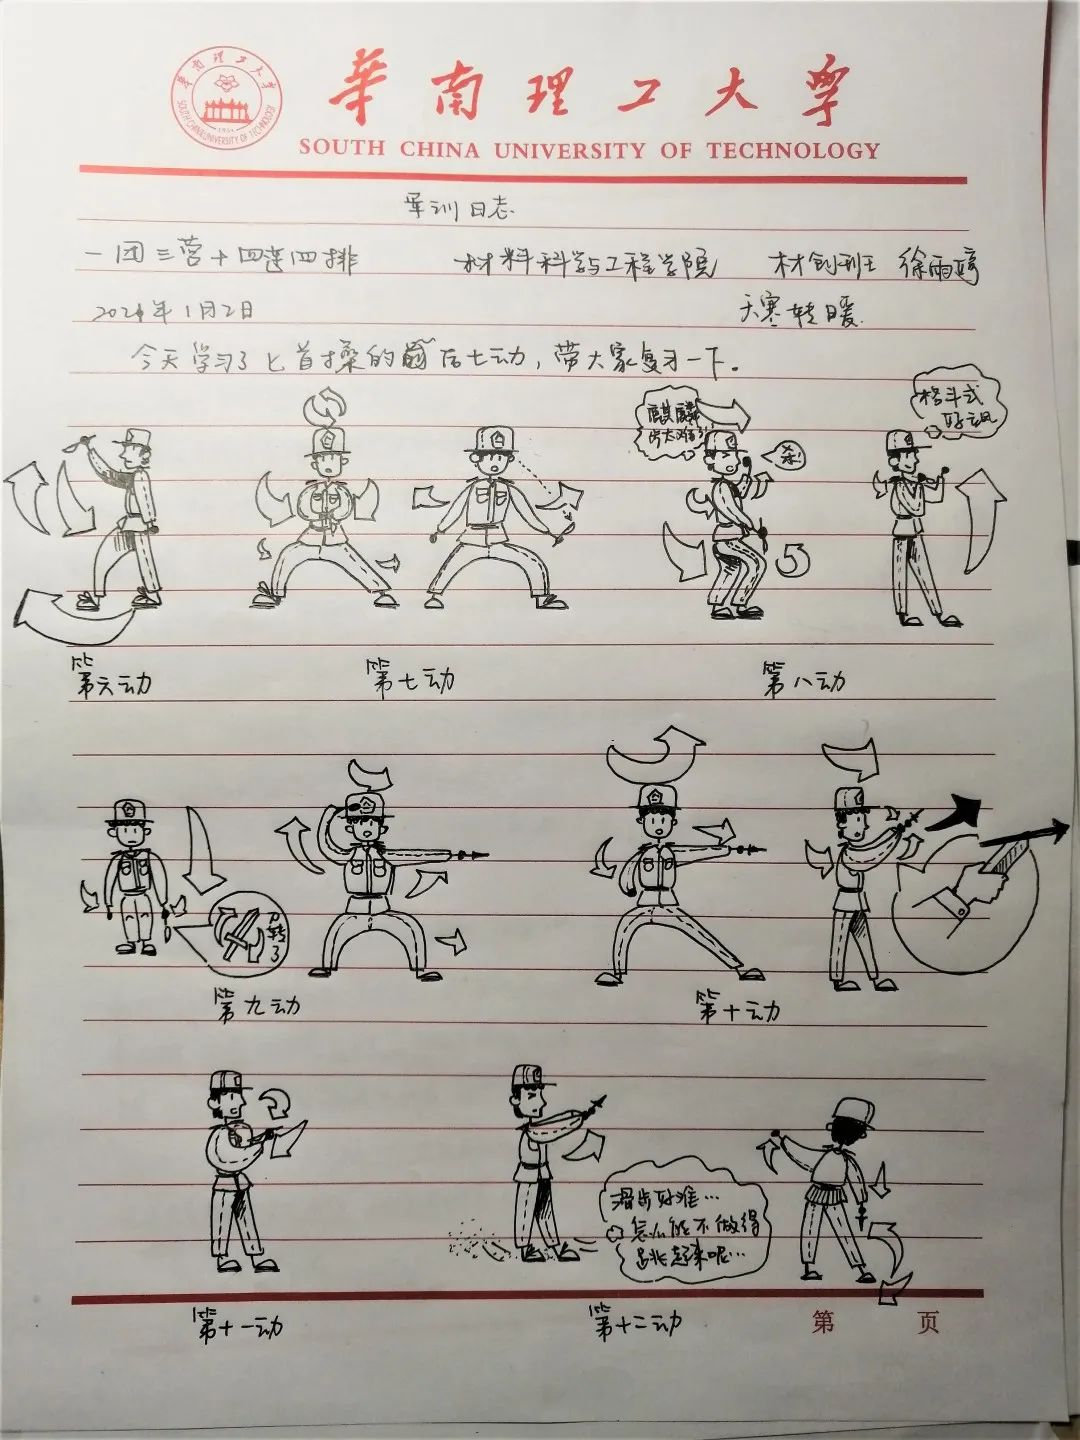 華南理工大學
SOUTH CHINA UNIVERSITY OF TECHNOLOGY
華南理工大学
SOUTH CHINA UNIVERSITY OF TECHNOLOGY
1934
军训日志
一团三营十四连四排 材料科学与工程学院 材创班 徐雨婷
2021年1月2日 天寒转暖
今天学习了匕首操的后七动，带大家复习一下。
麒麟
步太难了!
杀!
格斗式
好飒
第六动 第七动 第八动
尸转了
第九动 第十动
滑步好难…
怎么能不做得
跳起来呢…
第十一动 第十二动
第 页